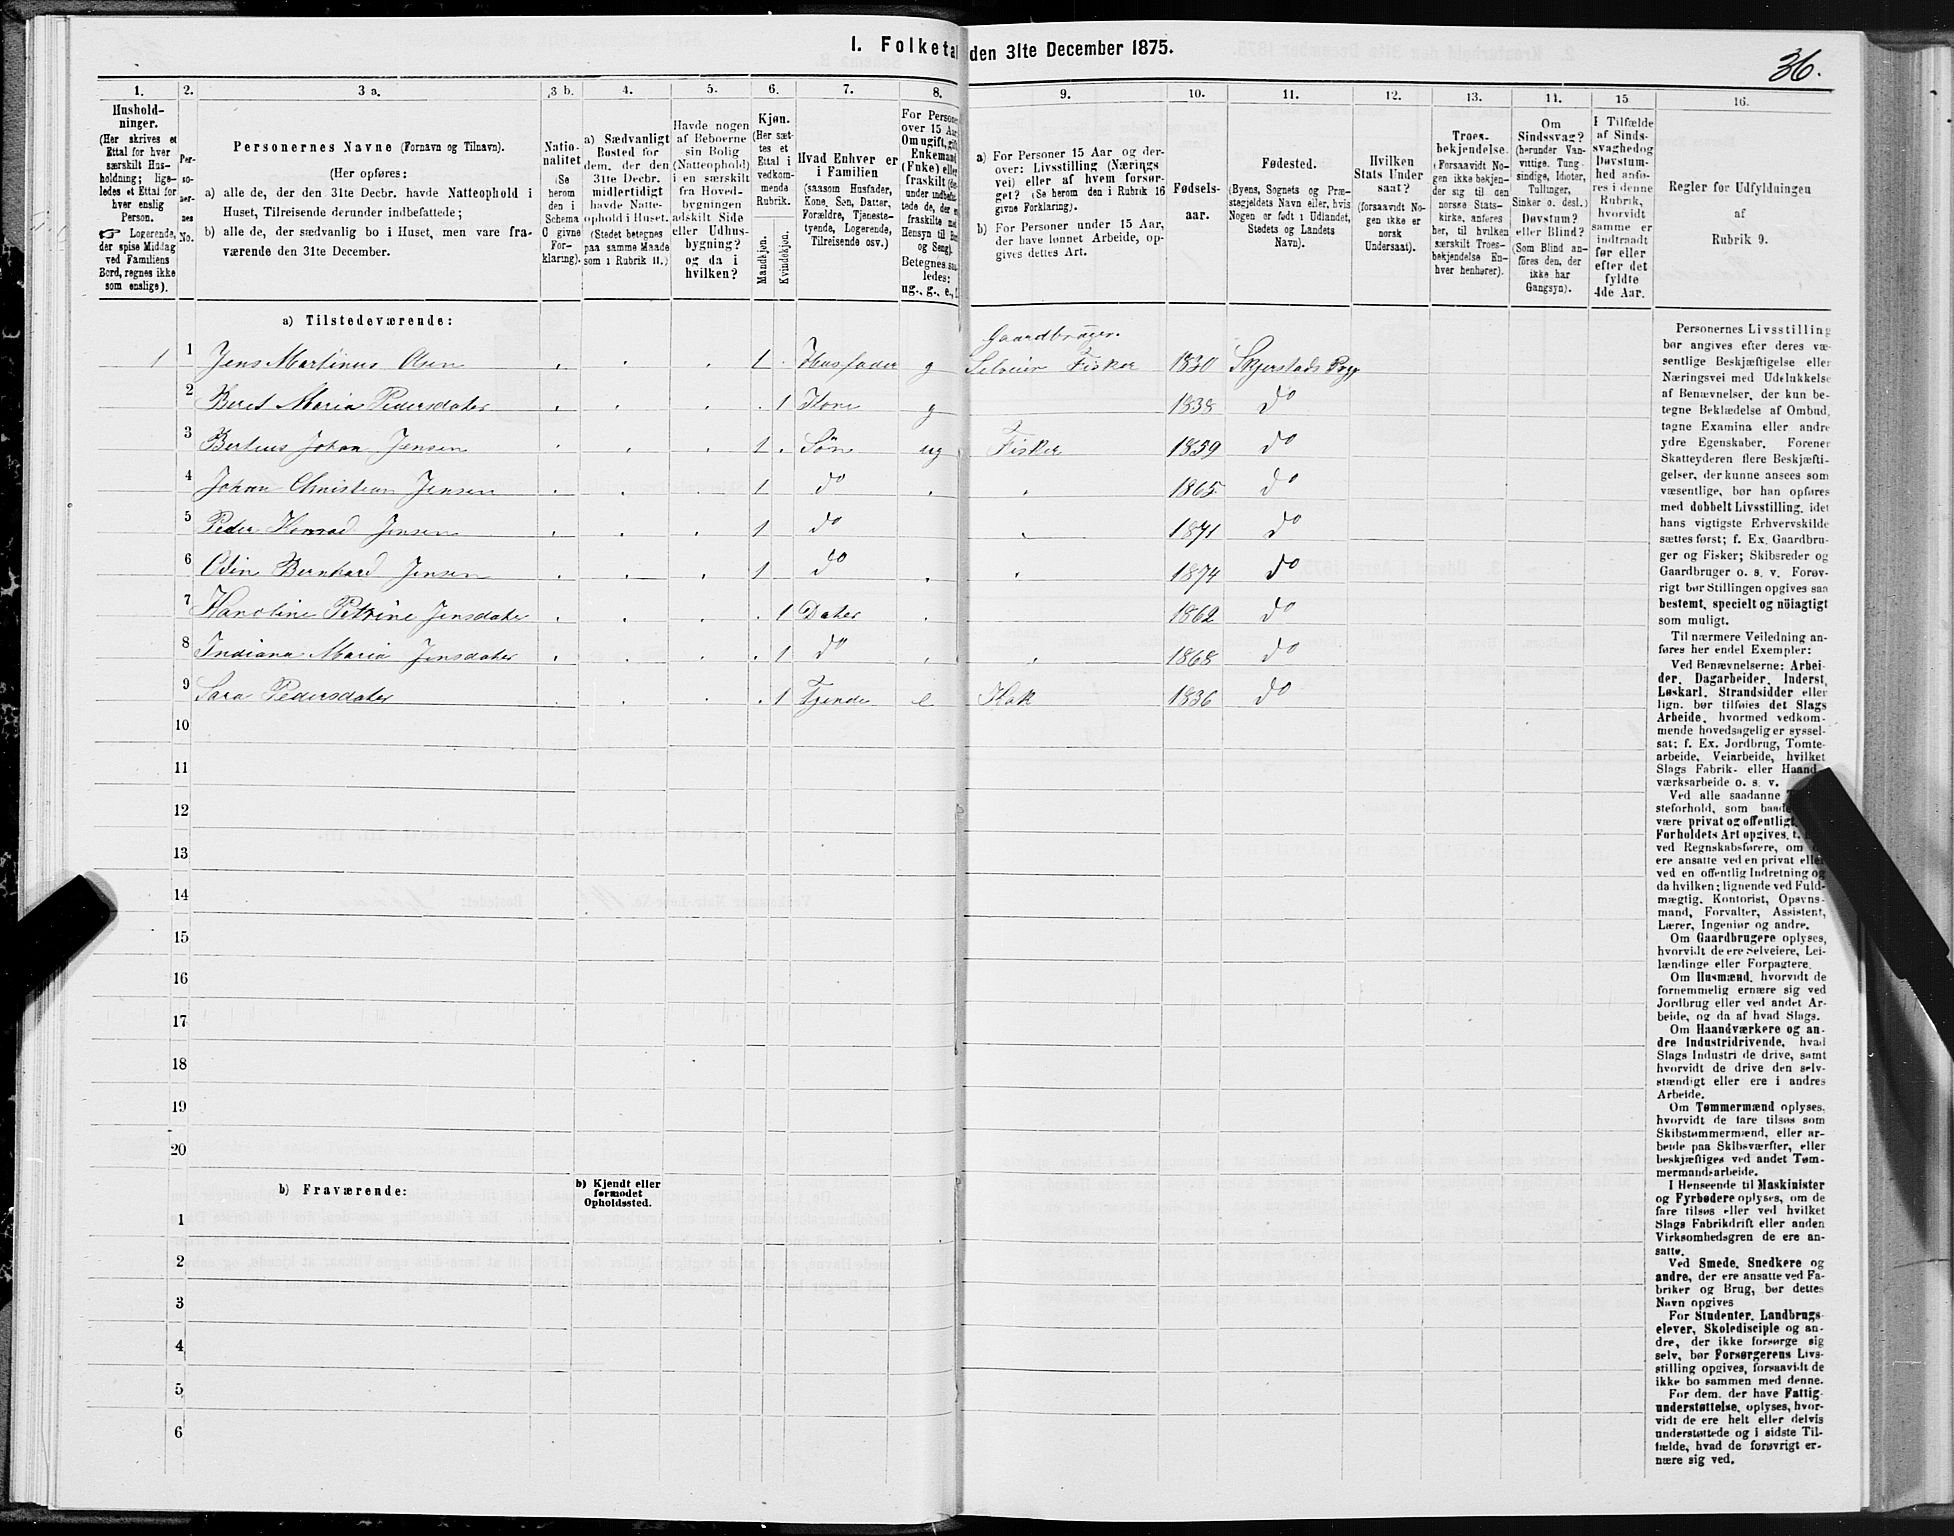 I. Folketal den 31te December 1875.
36.
1.
Hushold-
ninger.
(Her skrives et
Ettal for hver
særskilt Hus-
holdning; lige-
ledes et Ettal for
hver enslig
Person.
Logerende,
der spise Middag
ved Familiens
Bord, regnes ikke
som enslige).
2.
Per-
so-
ner-
nes
No.
3 a.
Personernes Navne (Fornavn og Tilnavn).
(Her opføres:
a) alle de, der den 31te Decbr. havde Natteophold i
Huset, Tilreisende derunder indbefattede;
b) alle de, der sædvanlig bo i Huset, men vare fra-
værende den 31te December.
3 b.
Natio-
nalitet
(Se
herom
den i
Schema
C givne
For-
klaring).
4.
a) Sædvanligt
Bosted for
dem, der den
31te Decbr.
midlertidigt
havde Natte-
ophold i Huset.
(Stedet betegnes
paa samme Maade
som i Rubrik 11.)
5.
Havde nogen
af Beboerne
sin Bolig
(Natteophold)
i en særskilt
fra Hoved-
bygningen
adskilt Side
eller Udhus-
bygning?
og da i
hvilken?
6.
Kjøn.
(Her sæt-
tes et
Ettal i
vedkom-
mende
Rubrik.
Mandkjøn.
Kvindekjøn.
7.
Hvad Enhver er
i Familien
(saasom Husfader,
Kone, Søn, Datter,
Forældre, Tjeneste-
tyende, Logerende,
Tilreisende osv.)
8.
For Persone
over 15 Aar
Om ugift, gift
Enkemand
(Enke) elle
fraskilt (de
under indbefat-
tede de, der e
fraskilte med
Hensyn til Bo
og Seng).
Betegnes saa-
ledes:
ug., g., e., f.
9.
a) For Personer 15 Aar og der-
over: Livsstilling (Nærings-
vei) eller af hvem forsør-
get? (Se herom den i Rubrik 16
givne Forklaring).
b) For Personer under 15 Aar,
der have lønnet Arbeide, op-
gives dettes Art.
10.
Fødsels-
aar.
11.
Fødested.
(Byens, Sognets og Præ-
stegjeldets Navn eller, hvis
Nogen er født i Udlandet,
Stedets og Landets
Navn).
12.
Hvilken
Stats Under
saat?
(forsaavidt No-
gen ikke er
norsk
Undersaat).
13.
Troes-
bekjendelse.
(Forsaavidt No-
gen ikke bekjen-
der sig til den
norske Stats-
kirke, anføres
her, til hvilken
særskilt Troes-
bekjendelse En-
hver henhører).
14.
Om
Sindssvag?
(herunder Van-
vittige, Tung-
sindige, Idioter,
Tullinger,
Sinker o. desl.)
Døvstum?
eller Blind?
(Som Blind an-
føres den, der
ikke har
Gangsyn).
15
I Tilfælde
af Sinds-
svaghed og
Døvstum-
hed anfø-
res i denne
Rubrik,
hvorvidt
samme er
indtraadt
før eller
efter det
fyldte
4de Aar.
16.
Regler for Udfyldningen
af
Rubrik 9.
a) Tilstedeværende:
Gaardbruger
1 1 Jens Martinus Olsen 1 Husfader g Selveier Fisker 1830 Skjerstads Prgj
2 Beret Maria Pedersdater 1 Kone g 1838 do
3 Bertius Johan Jensen 1 Søn ug Fisker 1859 do
4 Johan Christian Jensen 1 do 1865 do
5 Peder Konrad Jensen 1 do 1871 do
6 Odin Bernhard Jensen 1 do 1874 do
7 Hanoline Petrine Jensdater 1 Dater 1862 do
8 Indiana Maria Jensdater 1 do 1868 do
9 Sara Pedersdater 1 Tjende e Kok 1836 do
10
11
12
13
14
15
16
17
18
19
20
b) Fraværende:
b) Kjendt eller
formodet
Opholdssted.
1
2
3
4
5
6
Personernes Livsstilling
bør angives efter deres væ-
sentlige Beskjæftigelse eller
Næringsvei med Udelukkelse
af Benævnelser, der kun be-
tegne Beklædelse af Ombud,
tagne Examina eller andre
ydre Egenskaber. Forener
Skatteyderen flere Beskjæfti-
gelser, der kunne ansees som
væsentlige, bør han opføres
med dobbelt Livsstilling, idet
hans vigtigste Erhvervskilde
sættes først; f. Ex. Gaardbru-
ger og Fisker; Skibsreder og
Gaardbruger o. s. v. Forøv-
rigt bør Stillingen opgives saa
bestemt, specielt og nöiagtigt
som muligt.
Til nærmere Veiledning an-
føres her endel Exempler:
Ved Benævnelserne: Arbei-
der, Dagarbeider, Inderst,
Løskarl, Strandsidder eller
lign. bør tilføies det Slags
Arbeide, hvormed vedkom-
mende hovedsagelig er syssel-
sat; f. Ex. Jordbrug, Tomte-
arbeide, Veiarbeide, hvilket
Slags Fabrik- eller Haand-
værksarbeide o. s. v.
Ved alle saadanne
steforhold, som baade
være privat og offentligt,
Forholdets Art opgives, t.
ved Regnskabsførere, om
ere ansatte ved en privat eller
ved en offentlig Indretning og
da hvilken; lignende ved Fuld-
mægtig, Kontorist, Opsyns-
mand, Forvalter, Assistent,
Lærer, Ingeniør og andre.
Om Gaardbrugere oplyses,
hvorvidt de ere Selveiere, Lei-
lændinge eller Forpagtere.
Om Husmænd, hvorvidt de
fornemmelig ernære sig ved
Jordbrug eller ved andet Ar-
beide, og da af hvad Slags.
Om Haandværkere og an-
dre Industridrivende, hvad
Slags Industri de drive, samt
hvorvidt de drive den selv-
stændigt eller ere i andres
Arbeide.
Om Tømmermænd oplyses,
hvorvidt de fare tilsøs som
Skibstømmermænd, eller ar-
beide paa Skibsværfter, eller
beskjæftiges ved andet Tøm-
mermandsarbeide.
I Henseende til Maskinister
og Fyrbødere oplyses, om de
fare tilsøs eller ved hvilket
Slags Fabrikdrift eller anden
Virksomhedsgren de ere an-
satte.
Ved Smede, Snedkere og
andre, der ere ansatte ved Fa-
briker og Brug, bør dettes
Navn opgives
For Studenter, Landbrugs-
elever, Skoledisciple og an-
dre, der ikke forsørge sig
selv, bør Forsørgerens Livs-
stilling opgives, forsaavidt de
ikke bo sammen med denne.
For dem, der have Fattig-
understøttelse, oplyses, hvor-
vidt de ere helt eller delvis
understøttede og i sidste Til-
fælde, hvad de forøvrigt er-
nære sig ved.